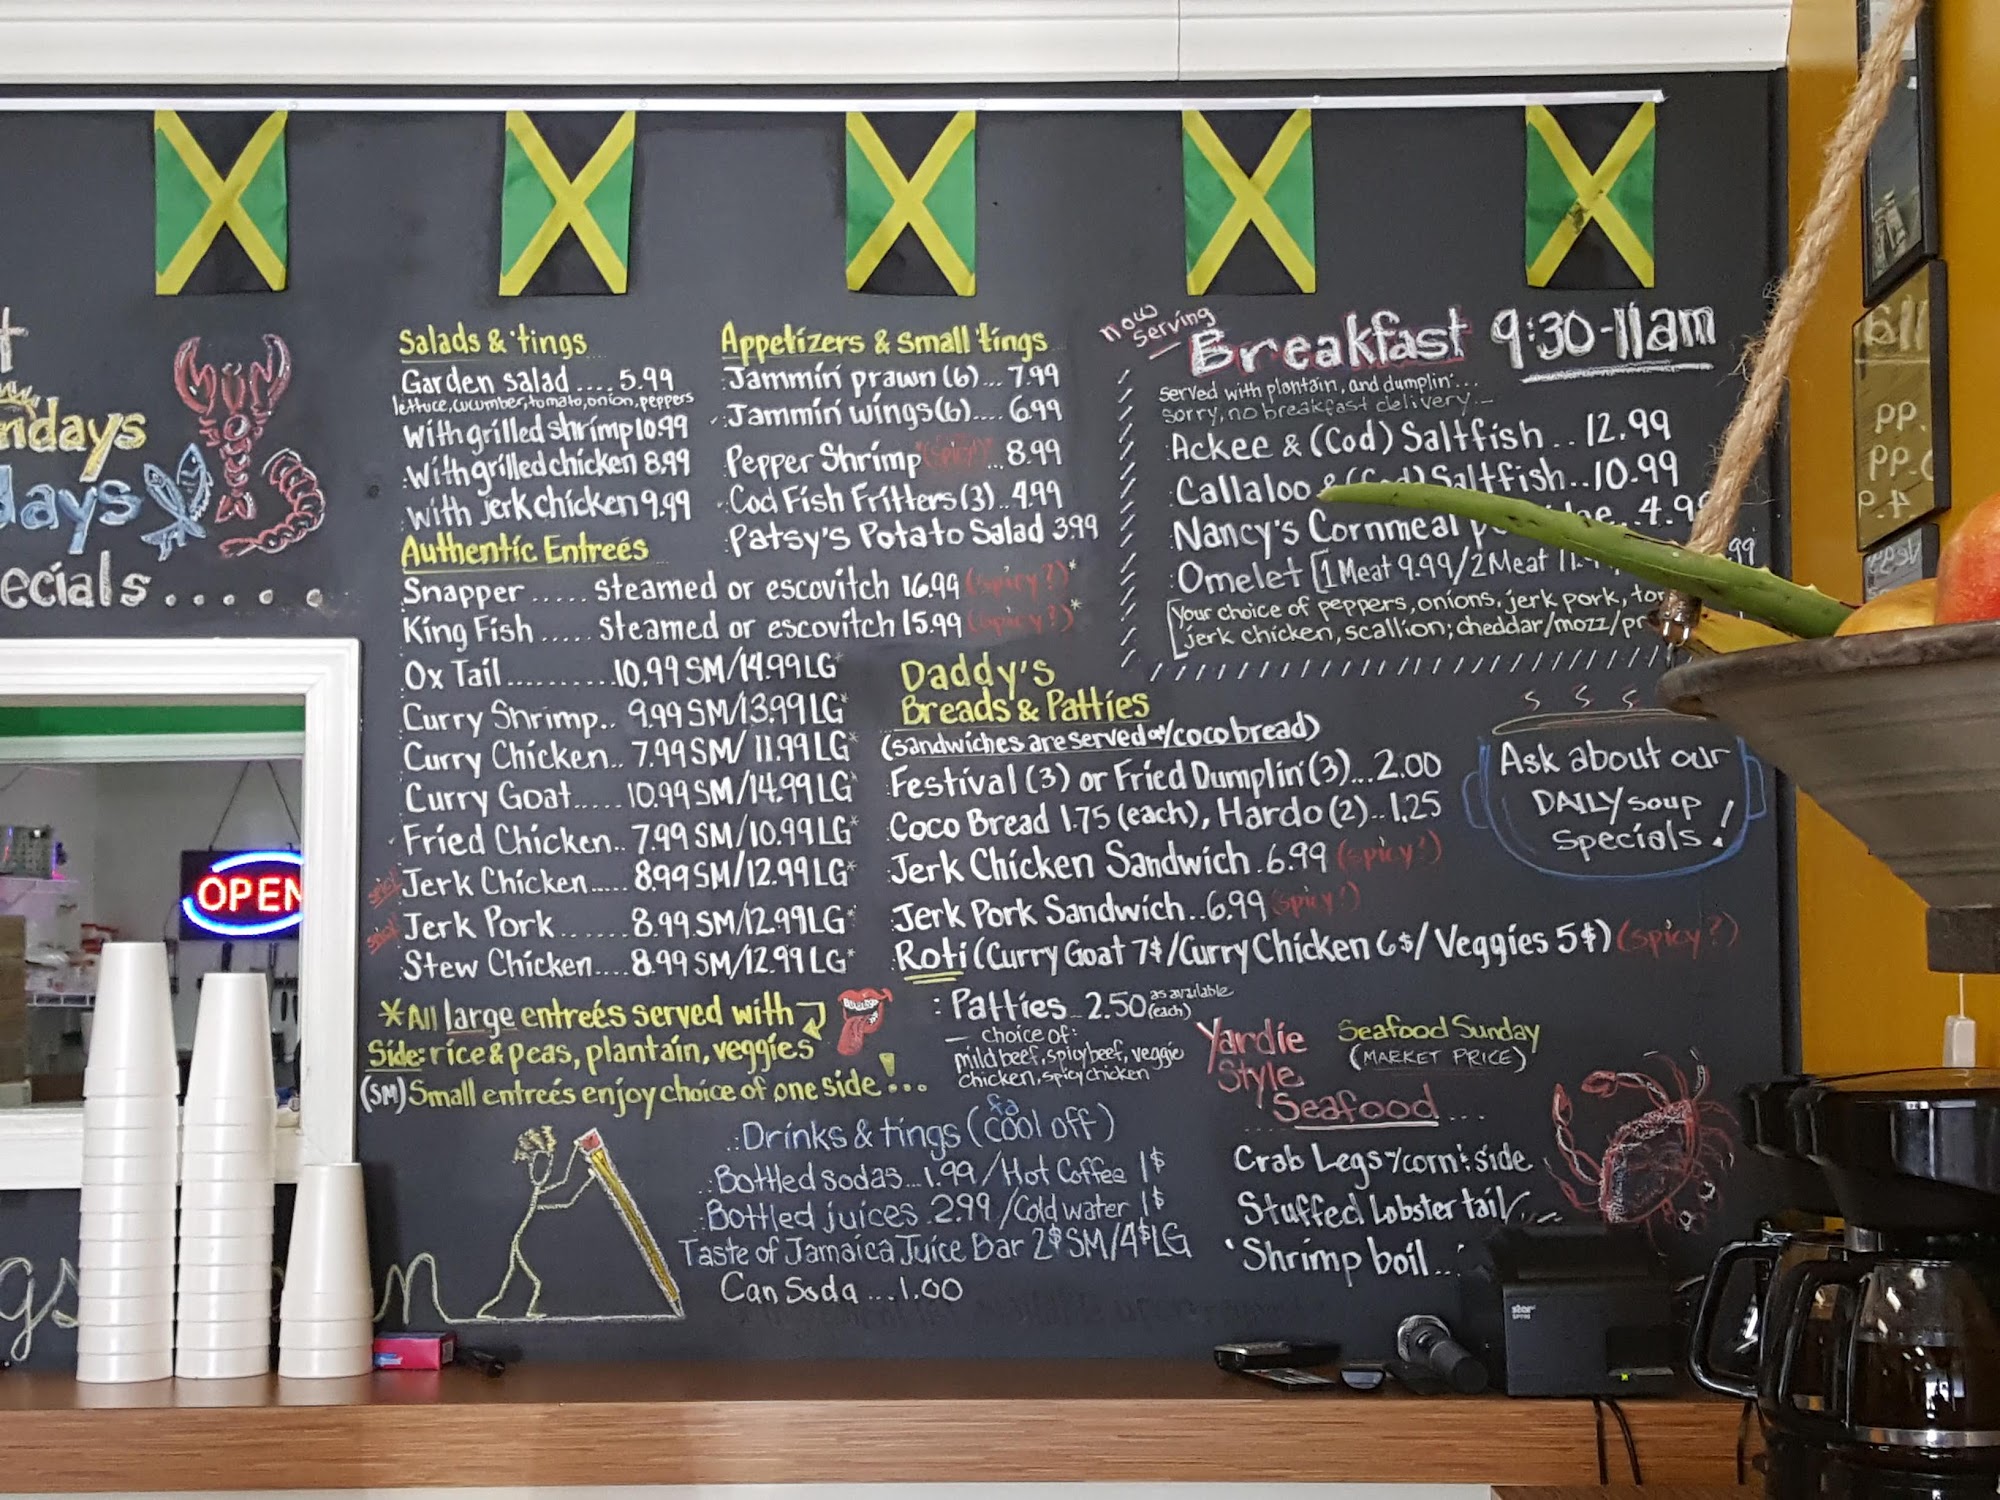 ndays
days
ecials.....
Salads & 'tings
Garden salad .... 5.99
lettuce, cucumber, tomato, onion, peppers
with grilled shrimp 10.99
with grilled chicken 8.99
with jerk chicken 9.99
Appetizers & small tings
Jammin' prawn (6)... 7.99
Jammin' wings (6).... 6.99
Pepper Shrimp (spicy!) ...8.99
Cod Fish Fritters (3)..4.99
Patsy's Potato Salad 3.99
Authentic Entreés
Snapper ...... steamed or escovitch 16.99 (spicy?)*
King Fish ..... steamed or escovitch 15.99 (spicy?)*
Ox Tail..........10.99 SM/14.99 LG*
Curry Shrimp.. 9.99 SM/13.99 LG*
Curry Chicken.. 7.99 SM/ 11.99 LG*
Curry Goat.....10.99 SM/14.99 LG*
Fried Chicken.. 7.99 SM/10.99 LG*
spicy! Jerk Chicken..... 8.99 SM/12.99 LG*
spicy! Jerk Pork....... 8.99 SM/12.99 LG*
Stew Chicken.... 8.99 SM/12.99 LG*
*All large entreés served with
Side: rice & peas, plantain, veggies
(SM) Small entreés enjoy choice of one side!...
now serving
Breakfast 9:30-11am
served with plantain, and dumplin'...
sorry, no breakfast delivery...
Ackee & (Cod) Saltfish.. 12.99
Callaloo & (Cod) Saltfish..10.99
Nancy's Cornmeal
Omelet [1 Meat 9.99/2 Meat
Your choice of peppers, onions, jerk pork,
jerk chicken, scallion; cheddar/mozz/
Daddy's
Breads & Patties
(sandwiches are served w/coco bread)
Festival (3) or Fried Dumplin' (3)...2.00
Coco Bread 1.75 (each), Hardo (2)..1.25
Jerk Chicken Sandwich.6.99 (spicy!)
Jerk Pork Sandwich..6.99 (spicy!)
Roti (Curry Goat 7$/Curry Chicken 6$/Veggies 5$) (spicy?)
: Patties..2.50 as available (each)
— choice of:
mild beef, spicy beef, veggie
chicken, spicy chicken
Ask about our
DAILY soup
specials!
Yardie
Style
Seafood...
Seafood Sunday
(MARKET PRICE)
Crab Legs w/corn & side
Stuffed Lobster tail
Shrimp boil...
Drinks & tings (fa cool off)
Bottled sodas...1.99/Hot Coffee 1$
Bottled juices.2.99/Cold water 1$
Taste of Jamaica Juice Bar 2$ SM/4$ LG
Can Soda...1.00
OPEN
gs
n
star